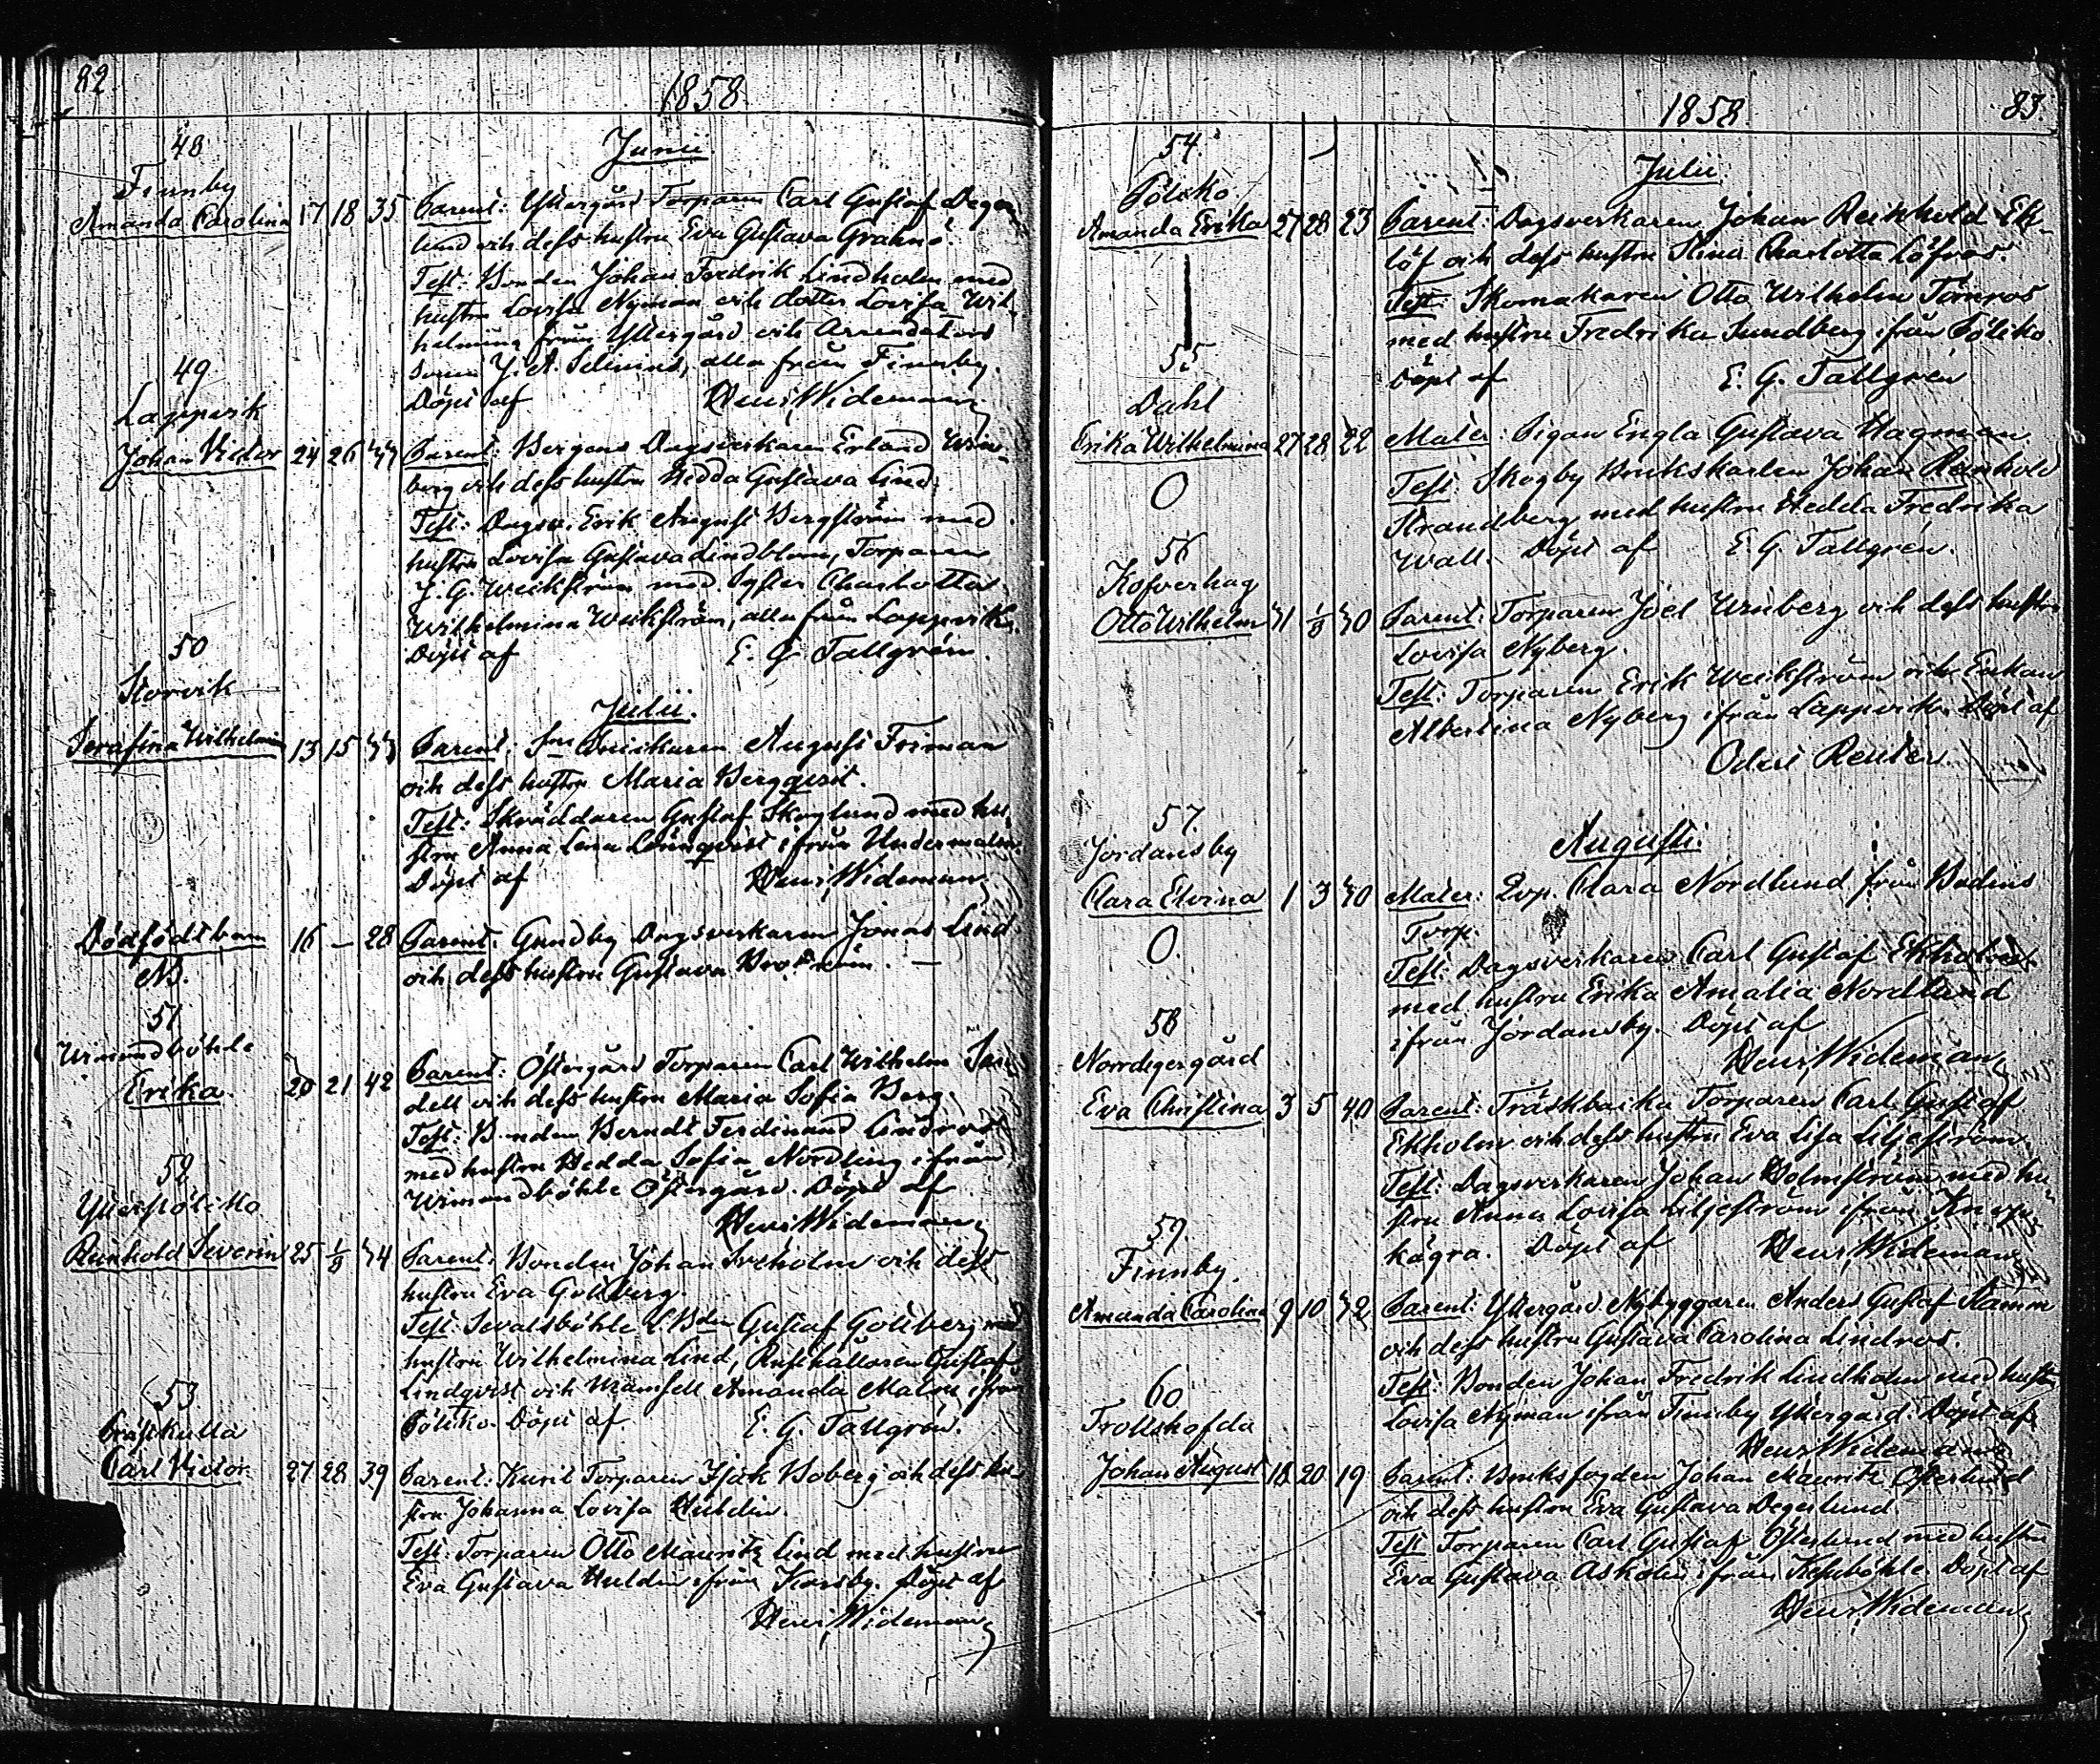 82.
1858.
48
Junii.
Finnby
Amanda Carolina 17 18 35 Parent: Yttergård Torparen Carl Gustaf Deger-
lund och dess hustru Eva Gustava Grahns.
Test: Bonden Johan Fredrik Lindholm med
hustru Lovisa Nyman och dotter Lovisa Wil-
helmina från Yttergård och Arrendators
sonen J. A. Selenius, alla från Finnby.
Döpt af Henr. Wideman
49
Lappvik
Johan Victor 24 26 Parent: Bergens Dagsverkaren Erland Win-
berg och dess hustru Hedda Gustava Lind.
Test: Dagsv. Erik August Bergström med
hustru Lovisa Gustava Lindblom, Torparen
J. G. Weckström med Syster Charlotta
Wilhelmina Weckström, alla från Lappvik.
Döpt af E. G. Tallgrén.
50
Storvik
Julii.
Serafina Wilhelmina 13 15 Parent: August Friman
och dess hustru Maria Bergqvist.
Test: Skräddaren Gustaf Skoglund med hu-
stru Anna Lena Lönnqvist ifrån Undermalm.
Döpt af Henr. Wideman
Dödfödt barn 16 — 28 Parent: Gundby Dagsverkaren Jonas Lind
och dess hustru Gustava Broström. —
NB.
51
Wimondböhle
Erika 20 21 42 Parent: Östergård Torparen Carl Wilhelm Sun-
dell och dess hustru Maria Sofia Berg.
Test: Bonden Berndt Ferdinand Lindros
med hustru Hedda Sofia Nordling ifrån
Wimondböhle Östergård. Döpt af
Henr. Wideman
52
Ytterpölikko
Reinhold Severin 25 1/8 34 Parent: Bonden Johan Sveholm och dess
hustru Eva Gottberg.
Test: Sevalsböhle Gustaf Gottberg med
hustru Wilhelmina Lind, Rusthållaren Gustaf
Lindqvist och Mamsell Amanda Malm ifrån
Pölikko. Döpt af E. G. Tallgrén.
53
Prästkulla
Carl Victor 27 28 39 Parent: Torparen Isak Boberg och dess hu-
stru Johanna Lovisa Huldin.
Test: Torparen Otto Mauritz Lind med hustru
Eva Gustava Huldin ifrån Karsby. Döpt af
Henr. Wideman
1858
83.
54.
Julii.
Pölikko
Amanda Erika 27 28 23 Parent: Dagsverkaren Johan Reinhold Ek-
löf och dess hustru Stina Charlotta Löfros.
Test: Skomakaren Otto Wilhelm Törnros
med hustru Fredrika Sundberg ifrån Pölikko.
Döpt af E. G. Tallgrén
55
Dahl
Erika Wilhelmina 27 28 22 Mater: Pigan Engla Gustava Hagman
Test: Skogby Brukskarlen Johan Reinhold
Strandberg med hustru Hedda Fredrika
Wall. Döpt af E. G. Tallgrén.
56
Kofverhag
Otto Wilhelm 31 1/8 30 Parent: Torparen Joel Winberg och dess hustru
Lovisa Nyberg.
Test: Torparen Erik Weckström och Enkan
Albertina Nyberg ifrån Lappvik. Döpt af
Odert Reuter.
57.
Augusti.
Jordansby
Clara Elvina 1 3 30 Mater: Clara Nordlund från Bodens
Torp.
Test: Dagsverkaren Carl Gustaf Ekholm
med hustru Erika Amalia Nordlund
ifrån Jordansby. Döpt af
Henr. Wideman
58
Norrdegergård
Eva Christina 3 5 40 Parent: Träskbacka Torparen Carl Gustaf
Ekholm och dess hustru Eva Lisa Liljeström.
Test: Dagsverkaren Johan Holmström med hu-
stru Anna Lovisa Liljeström ifrån Knap-
kägra. Döpt af Henr. Wideman
59
Finnby.
Amanda Carolina 9 10 32 Parent: Yttergård Nybyggaren Anders Gustaf Stamm
och dess hustru Gustava Carolina Lindros.
Test: Bonden Johan Fredrik Lindholm med hustru
Lovisa Nyman ifrån Finnby Yttergård. Döpt af
Henr. Wideman
60
Trollshofda
Johan August 18 20 19 Parent: Bruksfogden Johan Mauritz Österlund
och dess hustru Eva Gustava Degerlund.
Test Torparen Carl Gustaf Österlund med hustru
Eva Gustava Askolin ifrån Döpt af
Henr. Wideman